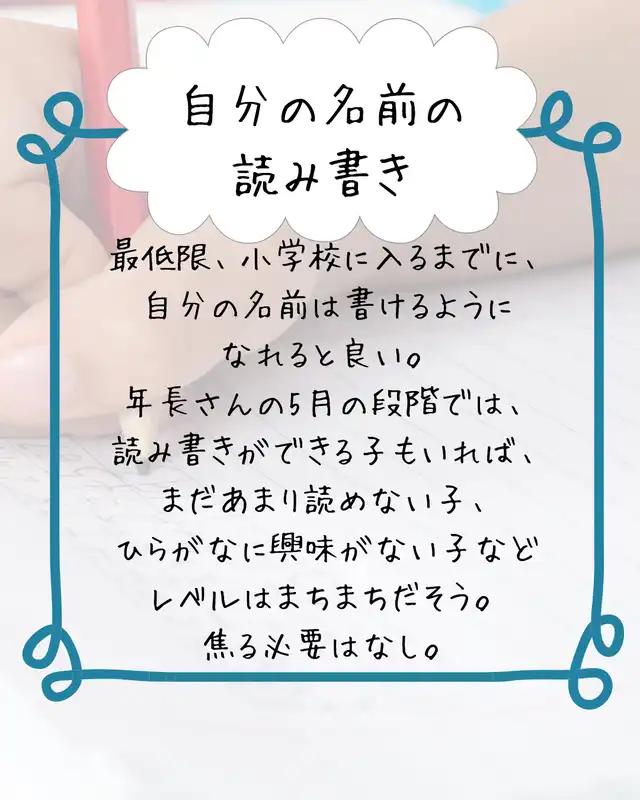 自分の名前の
読み書き
最低限、小学校に入るまでに、
自分の名前は書けるように
なれると良い。
年長さんの5月の段階では、
読み書きができる子もいれば、
まだあまり読めない子、
ひらがなに興味がない子など
レベルはまちまちだそう。
焦る必要はなし。